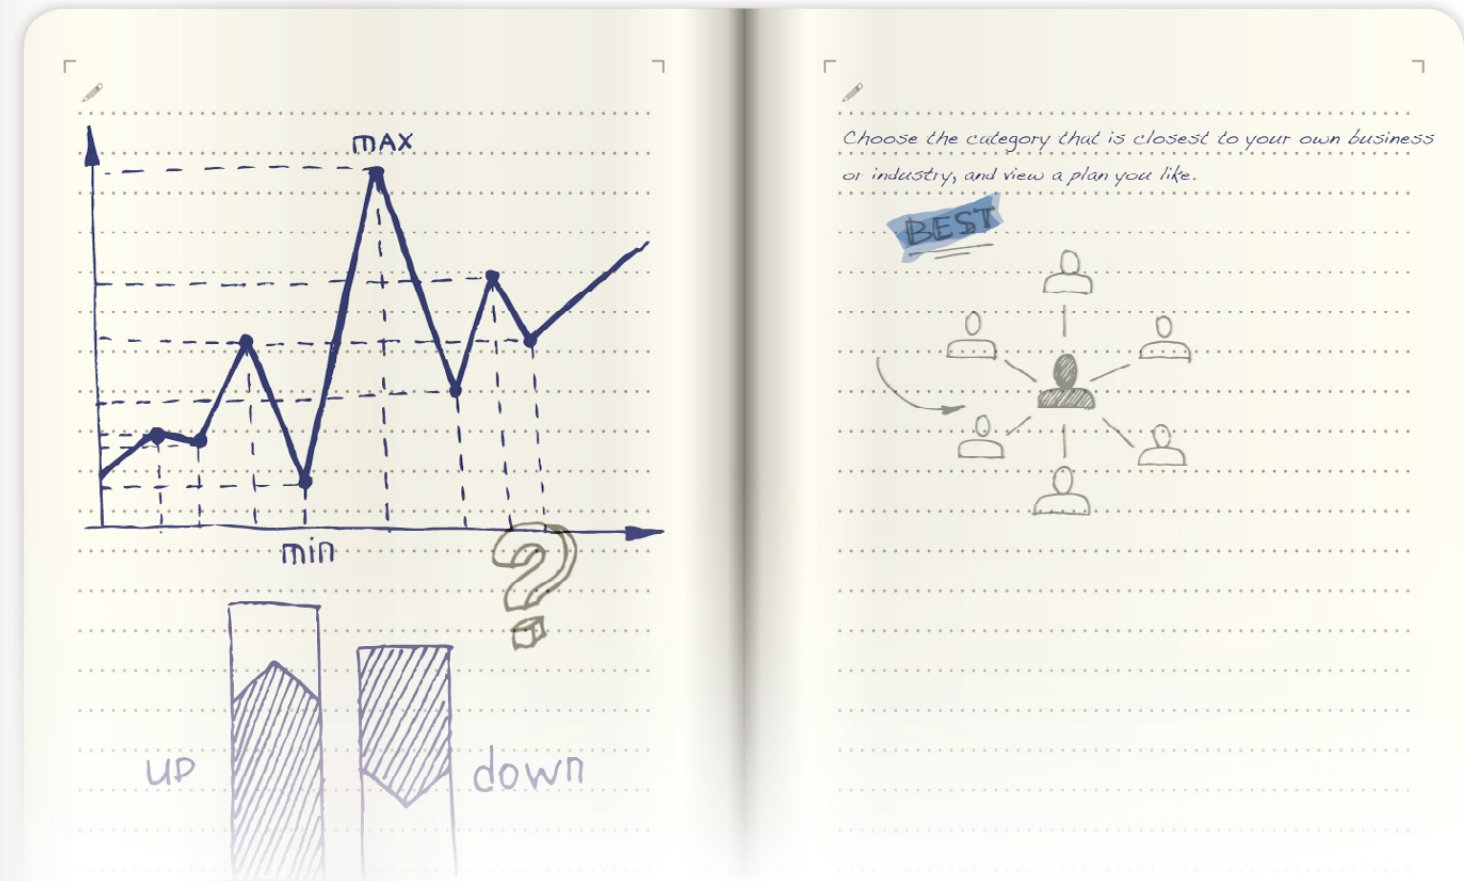 max
min
?
up
down
Choose the category that is closest to your own business
or industry, and view a plan you like.
BEST